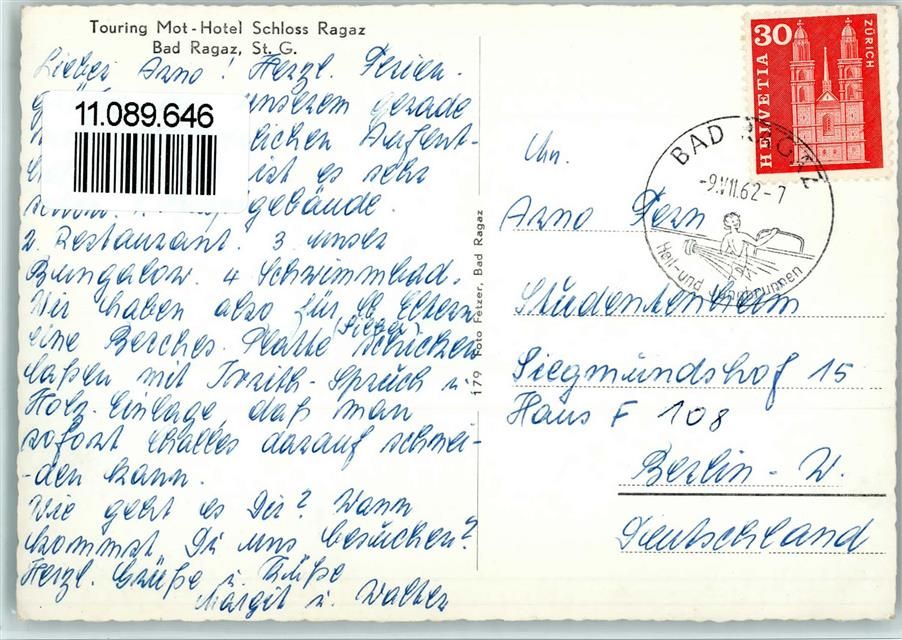 Touring Mot-Hotel Schloss Ragaz
Bad Ragaz, St. G.
Lieber Arno! Herzl. Ferien-
unserem gerade
11.089.646
lichen Aufent-
ist es sehr
gebäude.
2. Restaurant. 3 unser
Bungalow. 4 Schwimmbad.
Wir haben also für Eltern
eine Berches-Platte (Silber) schicken
laßen mit Spruch u.
Holz-Einlage, daß man
sofort Challes darauf schnei-
-den kann.
Wie geht es Dir? Wann
kommst Du uns besuchen?
Herzl. Grüße u. Küße
Margit u. Walter
179 Foto Fetzer, Bad Ragaz
HELVETIA 30 ZÜRICH
BAD RAGAZ
-9.VII.62-7
Heil- und Jungbrunnen
Arno Fern
Studentenheim
Siegmundshof 15
Haus F 108
Berlin-W.
Deutschland